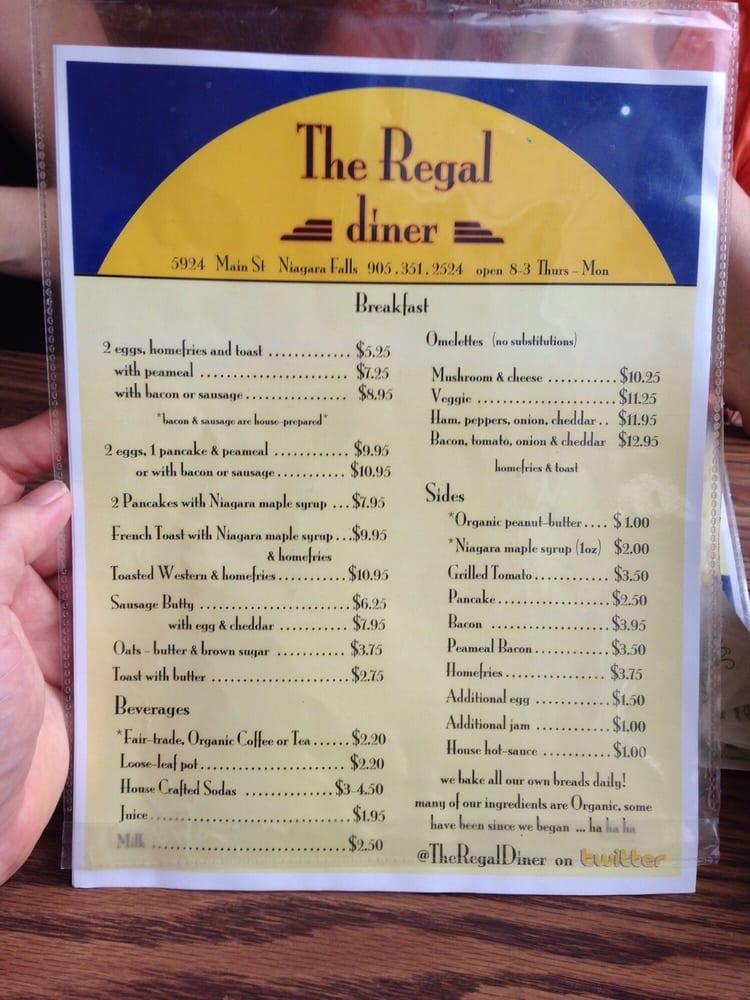 The Regal
diner
5924 Main St Niagara Falls 905.351.2524 open 8-3 Thurs - Mon
Breakfast
2 eggs, homefries and toast ............ $5.25
with peameal ..................... $7.25
with bacon or sausage ............... $8.95
*bacon & sausage are house-prepared*
2 eggs, 1 pancake & peameal ........... $9.95
or with bacon or sausage .......... $10.95
2 Pancakes with Niagara maple syrup ... $7.95
French Toast with Niagara maple syrup ... $9.95
& homefries
Toasted Western & homefries .......... $10.95
Sausage Butty ..................... $6.25
with egg & cheddar ........... $7.95
Oats - butter & brown sugar ........... $3.75
Toast with butter ................... $2.75
Beverages
*Fair-trade, Organic Coffee or Tea ...... $2.20
Loose-leaf pot ...................... $2.20
House Crafted Sodas ............. $3-4.50
Juice ............................. $1.95
Milk ............................. $2.50
Omelettes (no substitutions)
Mushroom & cheese .......... $10.25
Veggie ...................... $11.25
Ham, peppers, onion, cheddar .. $11.95
Bacon, tomato, onion & cheddar $12.95
homefries & toast
Sides
*Organic peanut-butter .... $1.00
*Niagara maple syrup (1oz) $2.00
Grilled Tomato ............ $3.50
Pancake .................. $2.50
Bacon ................... $3.95
Peameal Bacon ............ $3.50
Homefries ................ $3.75
Additional egg ............ $1.50
Additional jam ............ $1.00
House hot-sauce .......... $1.00
we bake all our own breads daily!
many of our ingredients are Organic, some
have been since we began ... ha ha ha
@TheRegalDiner on twitter